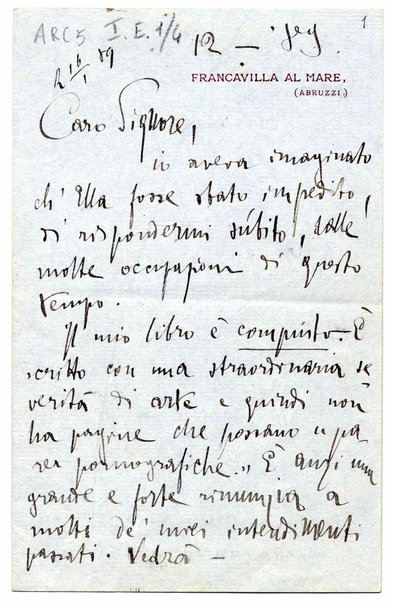 ARC5 I.E. 1/4
1
R 16/1 89
12 — '89
FRANCAVILLA AL MARE,
(ABRUZZI.)
Caro Signore,
io aveva imaginato
ch' Ella fosse stato impedito,
di rispondermi subito, dalle
molte occupazioni di questo
tempo.
Il mio libro è compiuto. È
scritto con una straordinaria se
verità di arte e quindi non
ha pagine che possano "pa
rer pornografiche." È anzi una
grande e forte rinunzia a
molti de' miei intendimenti
passati. Vedrà —